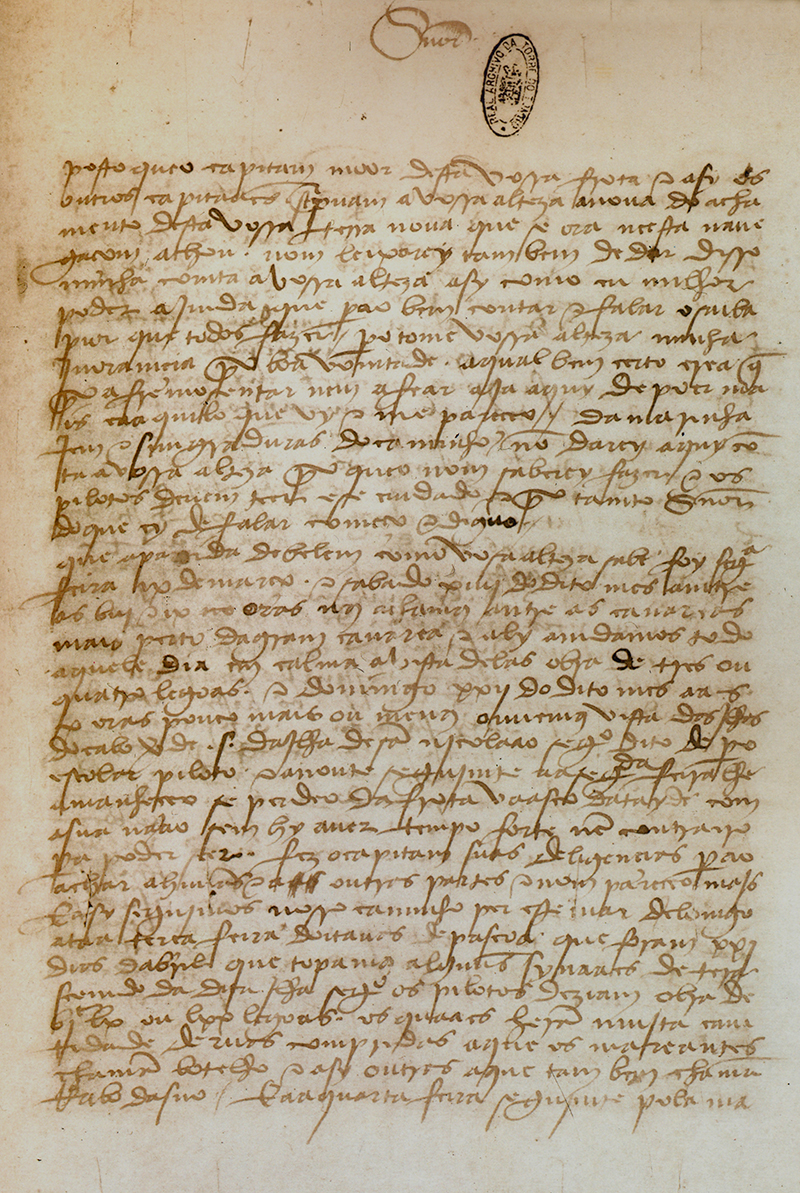 Snor
REAL ARCHIVO DA TORRE DO TOMBO
posto queo capitam moor desta vossa frota e asy os
outros capitaães screpuam a vossa alteza anoua do acha
mento desta vossa terra noua que se ora neesta naue
gaçom achou. nom leixarey tambem de dar disso
minha comta avossa alteza asy como eu milhor
poder ajmda que pera obem contar e falar osaiba
pior que todos fazer / pero tome vossa alteza minha
jnoramçia por boa vomtade. aqual bem çerto crea que
por afremosentar nem afear aja aquy de poer ma
is caaquilo que vy e me pareçeo / damarinha
jem e simgraduras docaminho nõ darey aquy cõ
ta avossa alteza porque o nom saberey fazer e os
pilotos deuem teer ese cuidado e por tamto Snor
do que ey de falar começo e diguo /
que apartida de belem como vosa alteza sabe foy segª
feira ix demarço. e sabado xiiij do dito mes amtre
as biij e ix oras nos achamos amtre as canareas
mais perto da gram canarea e aly amdamos todo
aquele dia em calma avista delas obra de tres ou
quatro legoas. e domingo xxij do dito mes aas
x oras pouco mais ou menos ouuemos vista dasjlhas
do cabo verde .s. dajlha de sã njcolaao segº dito de pº
escolar piloto. e anoute segujmte aasegda feira lhe
amanheçeo se perdeo da frota vaasco datayde com
asua naao sem hy auer tempo forte nẽ contrairo
pera poder seer. fez ocapitam suas deligençias perao
achar ahuũas e a outras partes e nom pareçeo mais
Easy segujmos nosso caminho per este mar delomgo
ataa terça feira doitauas de pascoa que foram xxj
dias dabril que topamos alguũs synaaes de terra
seemdo da dita jlha segº os pilotos deziam obra de
bjc lx ou lxx legoas. os quaaes herã muita cam
tidade deruas compridas aque os mareantes
chamã botelho e asy outras aque tam bem chamã
Rabo dasno / Eaaquarta feira segujmte pola ma